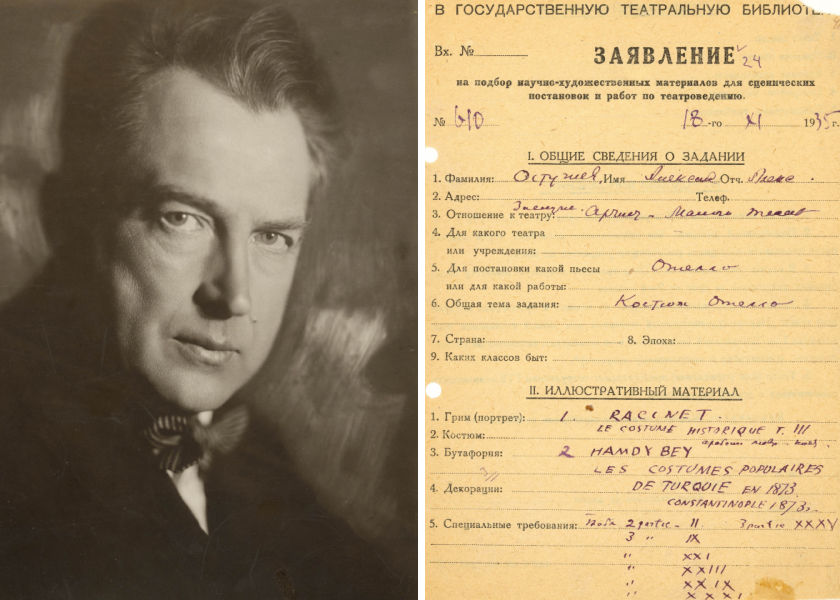 В ГОСУДАРСТВЕННУЮ ТЕАТРАЛЬНУЮ
Вх. №
ЗАЯВЛЕНИЕ 24
на подбор научно-художественных материалов для сценических
постановок и работ по театроведению.
№ 610 18-го XI 1935 г.
I. ОБЩИЕ СВЕДЕНИЯ О ЗАДАНИИ
1. Фамилия: Остужев, Имя Отч.
2. Адрес: Телеф.
3. Отношение к театру:
4. Для какого театра
или учреждения:
5. Для постановки какой пьесы Отелло
или для какой работы:
6. Общая тема задания: Костюм Отелло
7. Страна: 8. Эпоха:
9. Каких классов быт:
II. ИЛЛЮСТРАТИВНЫЙ МАТЕРИАЛ
1. Грим (портрет): 1. RACINET.
LE COSTUME HISTORIQUE T. III
2. Костюм:
3. Бутафория: 2 HAMDY BEY
LES COSTUMES POPULAIRES
4. Декорации: DE TURQUIE EN 1873.
CONSTANTINOPLE 1873.
5. Специальные требования: 2 partie - II 3 partie XXXV
3 " IX
" XXI
" XXIII
" XXIX
" XXXI